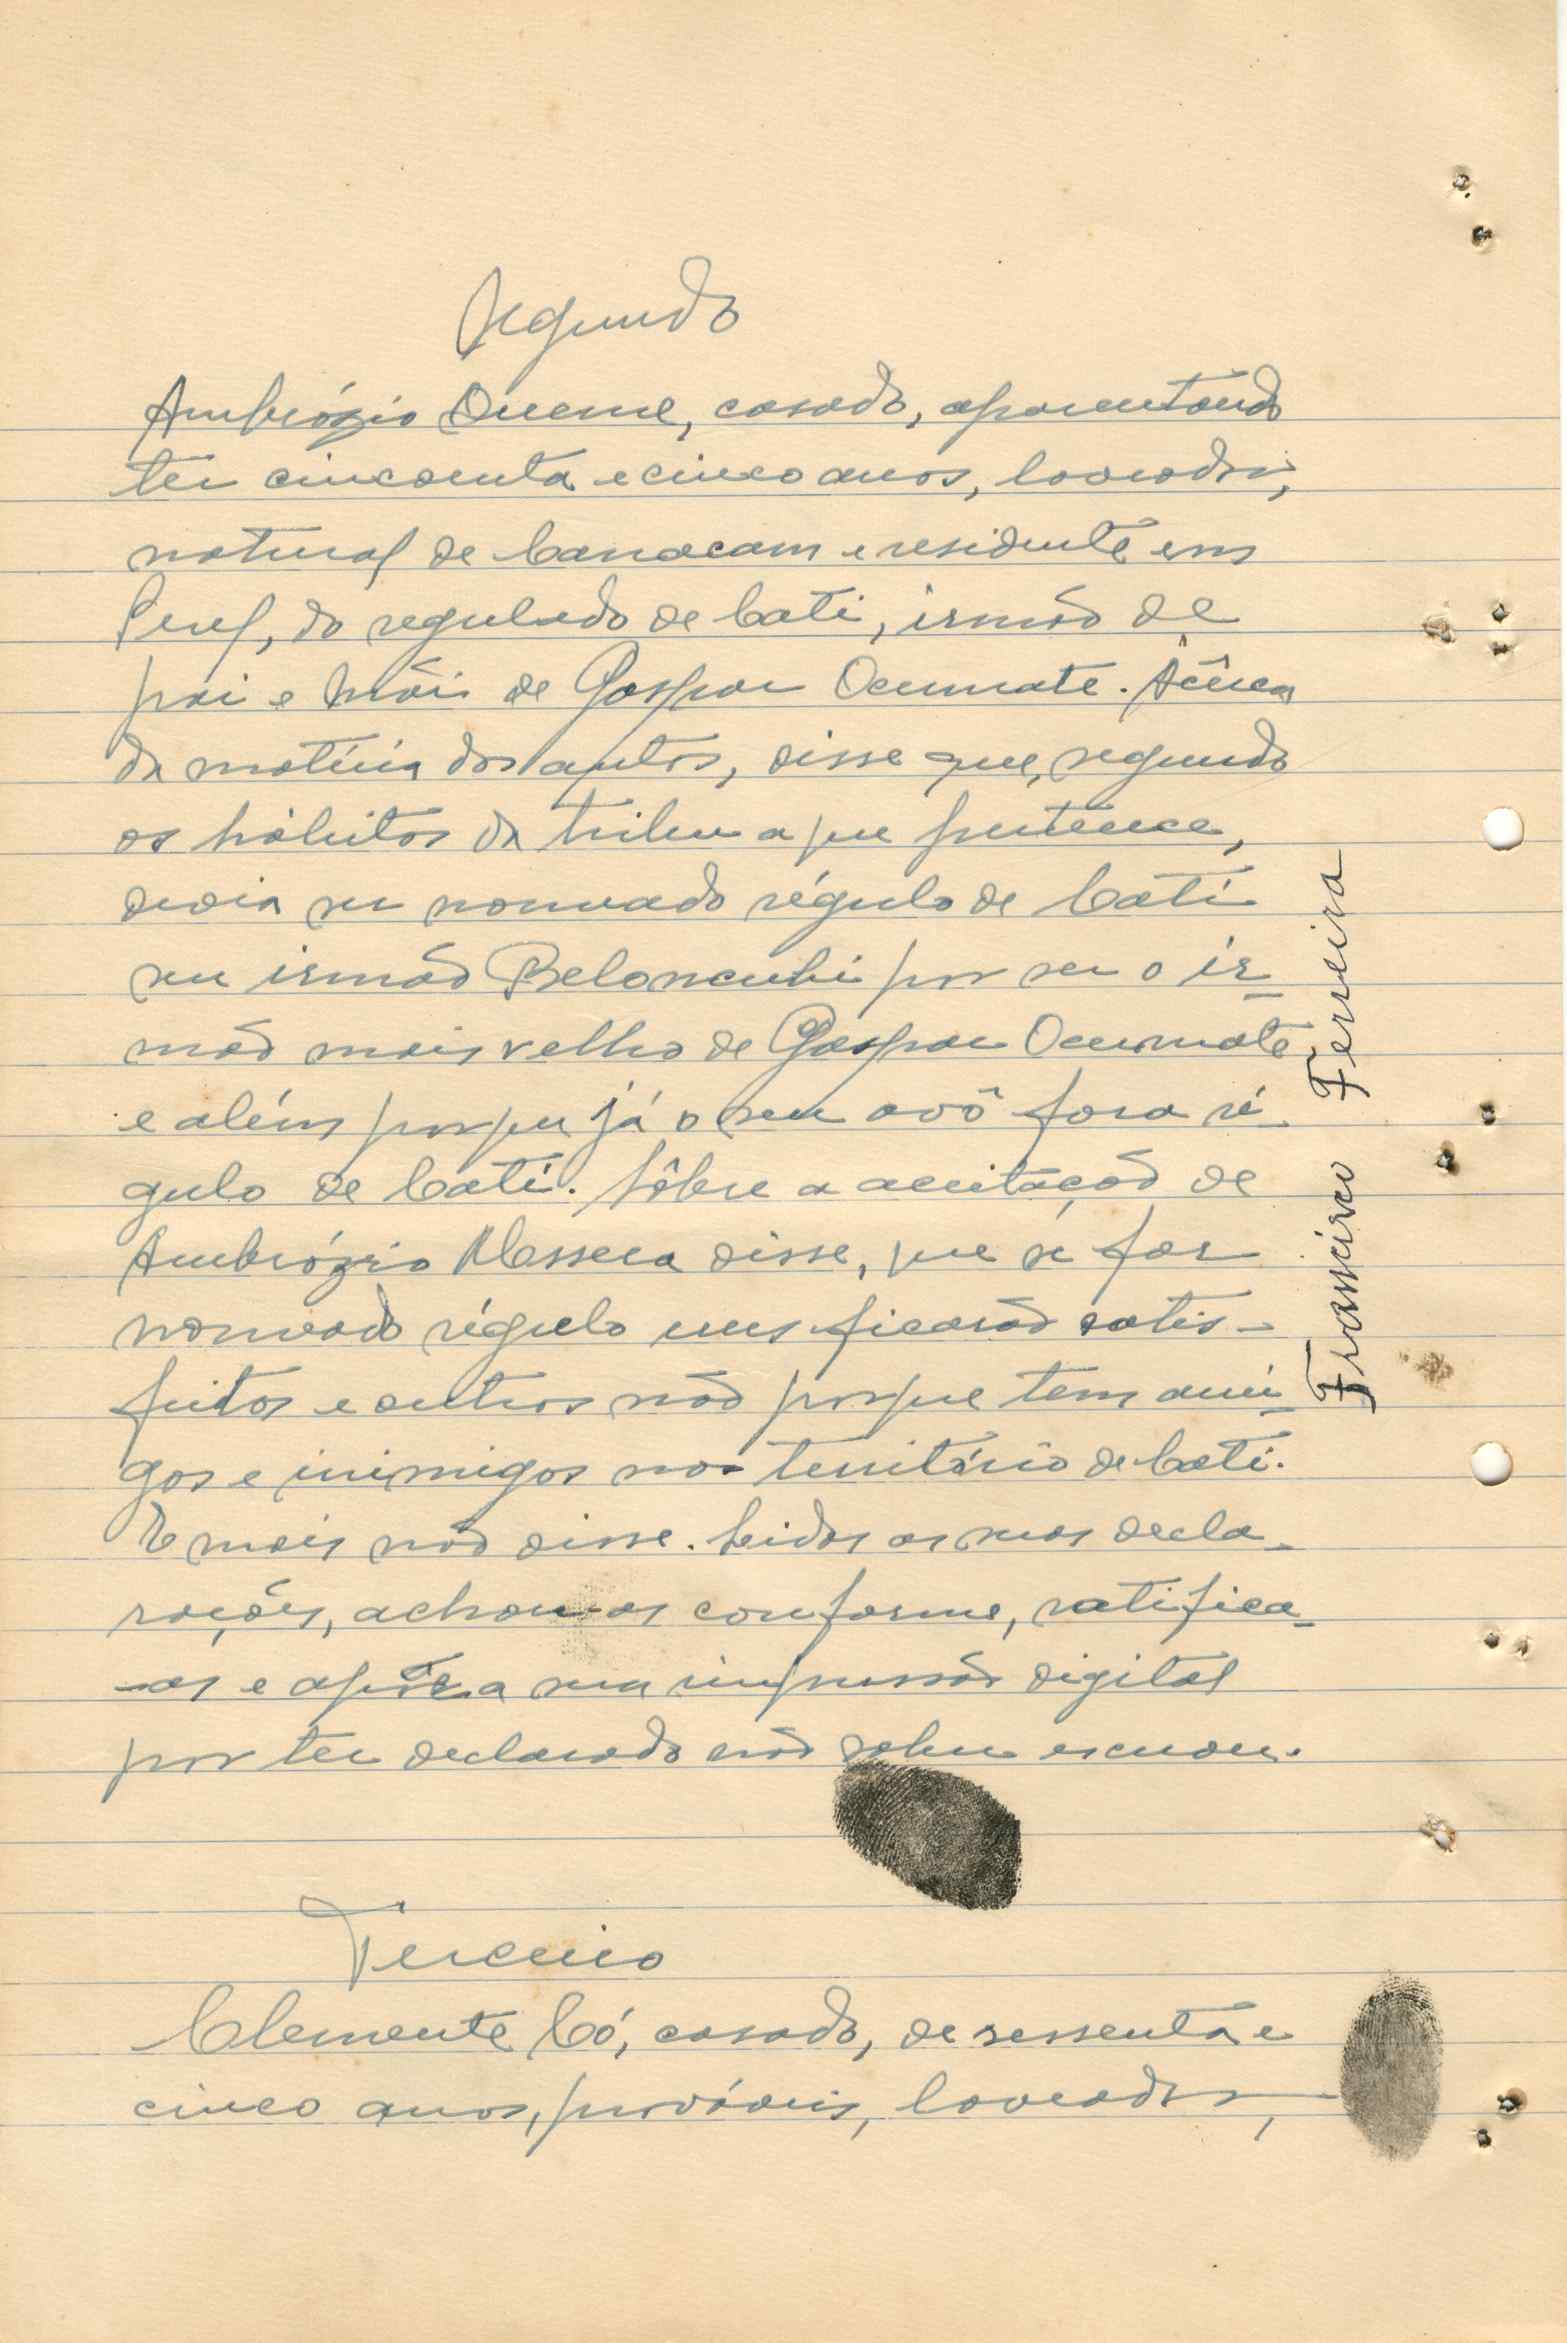 Segundo
Ambrózio Oueme, casado, aparentando
ter cincoenta e cinco anos, lavrador,
natural de Canacam e residente em
Perel, do regulado de Cati, irmão de
pai e mãi de Gaspar Ocumate. Àcêrca
da matéria dos autos, disse que, segundo
os hábitos da tribu a que pertence,
devia ser nomeado régulo de Cati
seu irmão Beloncuhi por ser o ir-
mão mais velho de Gaspar Ocumate
e além porque já o seu avô fora ré-
gulo de Cati. Sôbre a aceitação de
Ambrózio Massera disse, que se for
nomeado régulo uns ficarão satis-
feitos e outros não porque tem ami-
gos e inimigos no território de Cati.
E mais não disse. Lidas as suas decla-
rações, achou-as conforme, ratifica-
-as e apõe a sua impressão digital
por ter declarado não saber escrever.
Terceiro
Clemente Có, casado, de sessenta e
cinco anos, prováveis, lavrador,
Francisco Ferreira